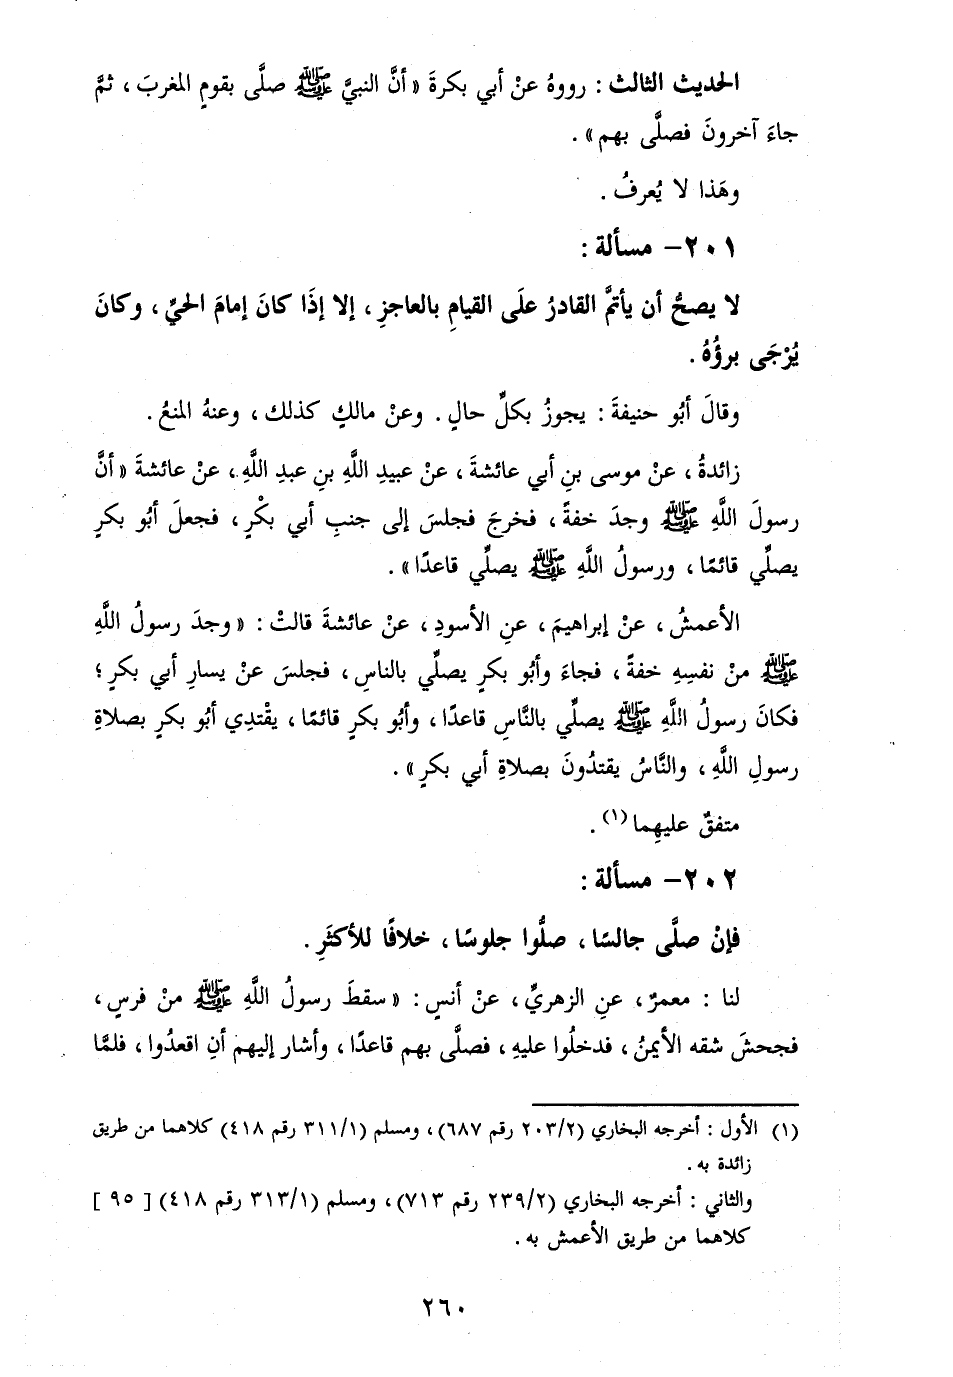 الحديث الثالث : رووهُ عنْ أبي بكرةَ « أنَّ النبيَّ ﷺ صلَّى بقومٍ المغربَ ، ثمَّ
جاءَ آخرونَ فصلَّى بهم » .
وهَذا لا يُعرفُ .
٢٠١- مسألة :
لا يصحُّ أن يأتمَّ القادرُ علَى القيامِ بالعاجزِ ، إلا إذَا كانَ إمامَ الحيِّ ، وكانَ
يُرْجَى برؤُهُ .
وقالَ أبُو حنيفةَ : يجوزُ بكلِّ حالٍ . وعنْ مالكٍ كذلك ، وعنهُ المنعُ .
زائدةُ ، عنْ موسى بنِ أبي عائشةَ ، عنْ عبيدِ اللَّهِ بنِ عبدِ اللَّهِ ، عنْ عائشةَ « أنَّ
رسولَ اللَّهِ ﷺ وجدَ خفةً ، فخرجَ فجلسَ إلى جنبِ أبي بكْرٍ ، فجعلَ أبُو بكرٍ
يصلِّي قائمًا ، ورسولُ اللَّهِ ﷺ يصلِّي قاعدًا » .
الأعمشُ ، عنْ إبراهيمَ ، عنِ الأسودِ ، عنْ عائشةَ قالتْ : « وجدَ رسولُ اللَّهِ
ﷺ منْ نفسِهِ خفةً ، فجاءَ وأبُو بكرٍ يصلِّي بالناسِ ، فجلسَ عنْ يسارِ أبي بكرٍ ؛
فكانَ رسولُ اللَّهِ ﷺ يصلِّي بالنَّاسِ قاعدًا ، وأبُو بكرٍ قائمًا ، يقْتدِي أبُو بكرٍ بصلاةِ
رسولِ اللَّهِ ، والنَّاسُ يقتدُونَ بصلاةِ أبي بكرٍ » .
متفقٌ عليهِما (١) .
٢٠٢- مسألة :
فإنْ صلَّى جالسًا ، صلُّوا جلوسًا ، خلافًا للأكثَرِ .
لنا : معمرٌ ، عنِ الزهريِّ ، عنْ أنسٍ : « سقطَ رسولُ اللَّهِ ﷺ منْ فرسٍ ،
فجحشَ شقه الأيمنُ ، فدخلُوا عليهِ ، فصلَّى بهم قاعدًا ، وأشار إليهم أنِ اقعدُوا ، فلمَّا
(١) الأول : أخرجه البخاري (٢٠٣/٢ رقم ٦٨٧) ، ومسلم (٣١١/١ رقم ٤١٨) كلاهما من طريق
زائدة به .
والثاني : أخرجه البخاري (٢٣٩/٢ رقم ٧١٣) ، ومسلم (٣١٣/١ رقم ٤١٨) [ ٩٥ ]
كلاهما من طريق الأعمش به .
٢٦٠